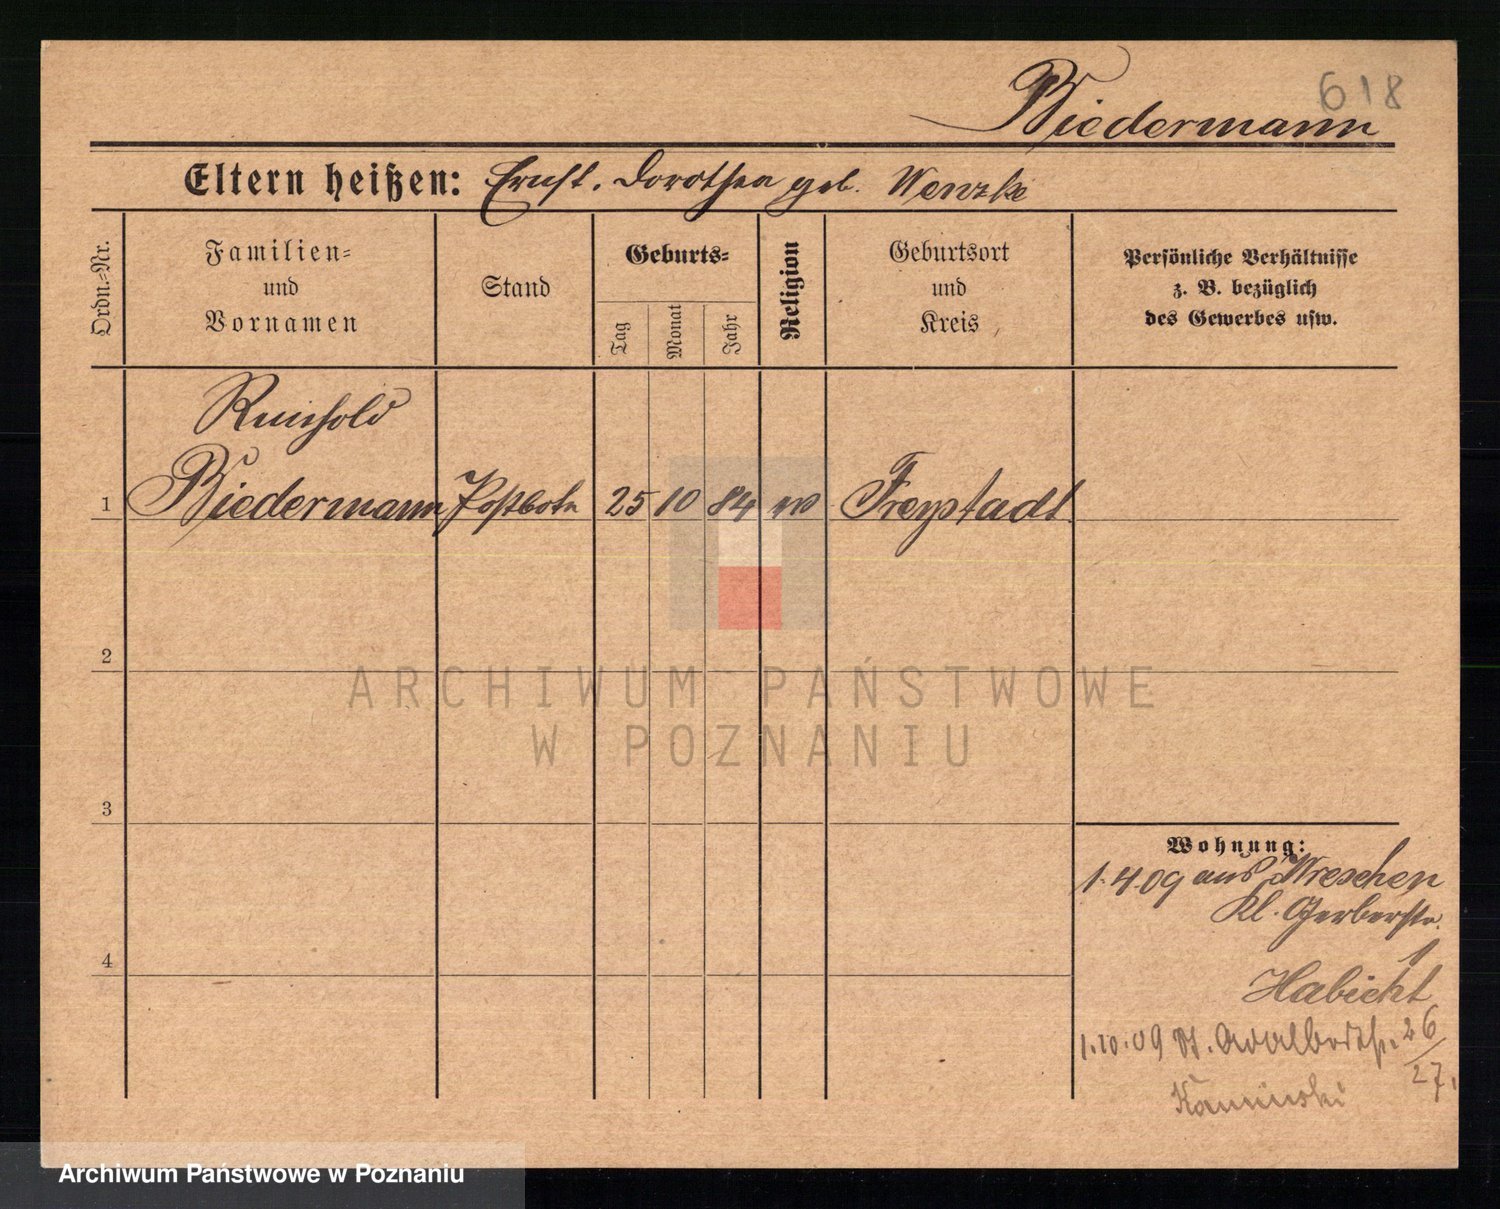 618
Biedermann
Eltern heißen: Ernst. Dorothea geb. Wenzke
Ordn.-Nr.
Familien-
und
Vornamen
Stand
Geburts-
Tag
Monat
Jahr
Religion
Geburtsort
und
Kreis
Persönliche Verhältnisse
z. B. bezüglich
des Gewerbes usw.
Reinhold
1 Biedermann Postbote 25 10 84 Freystadt
2
ARCHIWUM PAŃSTWOWE
W POZNANIU
3
Wohnung:
1.4.09 aus Wreschen
Kl. Gerberstr.
1
4
Habicht
1.10.09 St. Adalbertstr. 26/27.
Kaminski
Archiwum Państwowe w Poznaniu